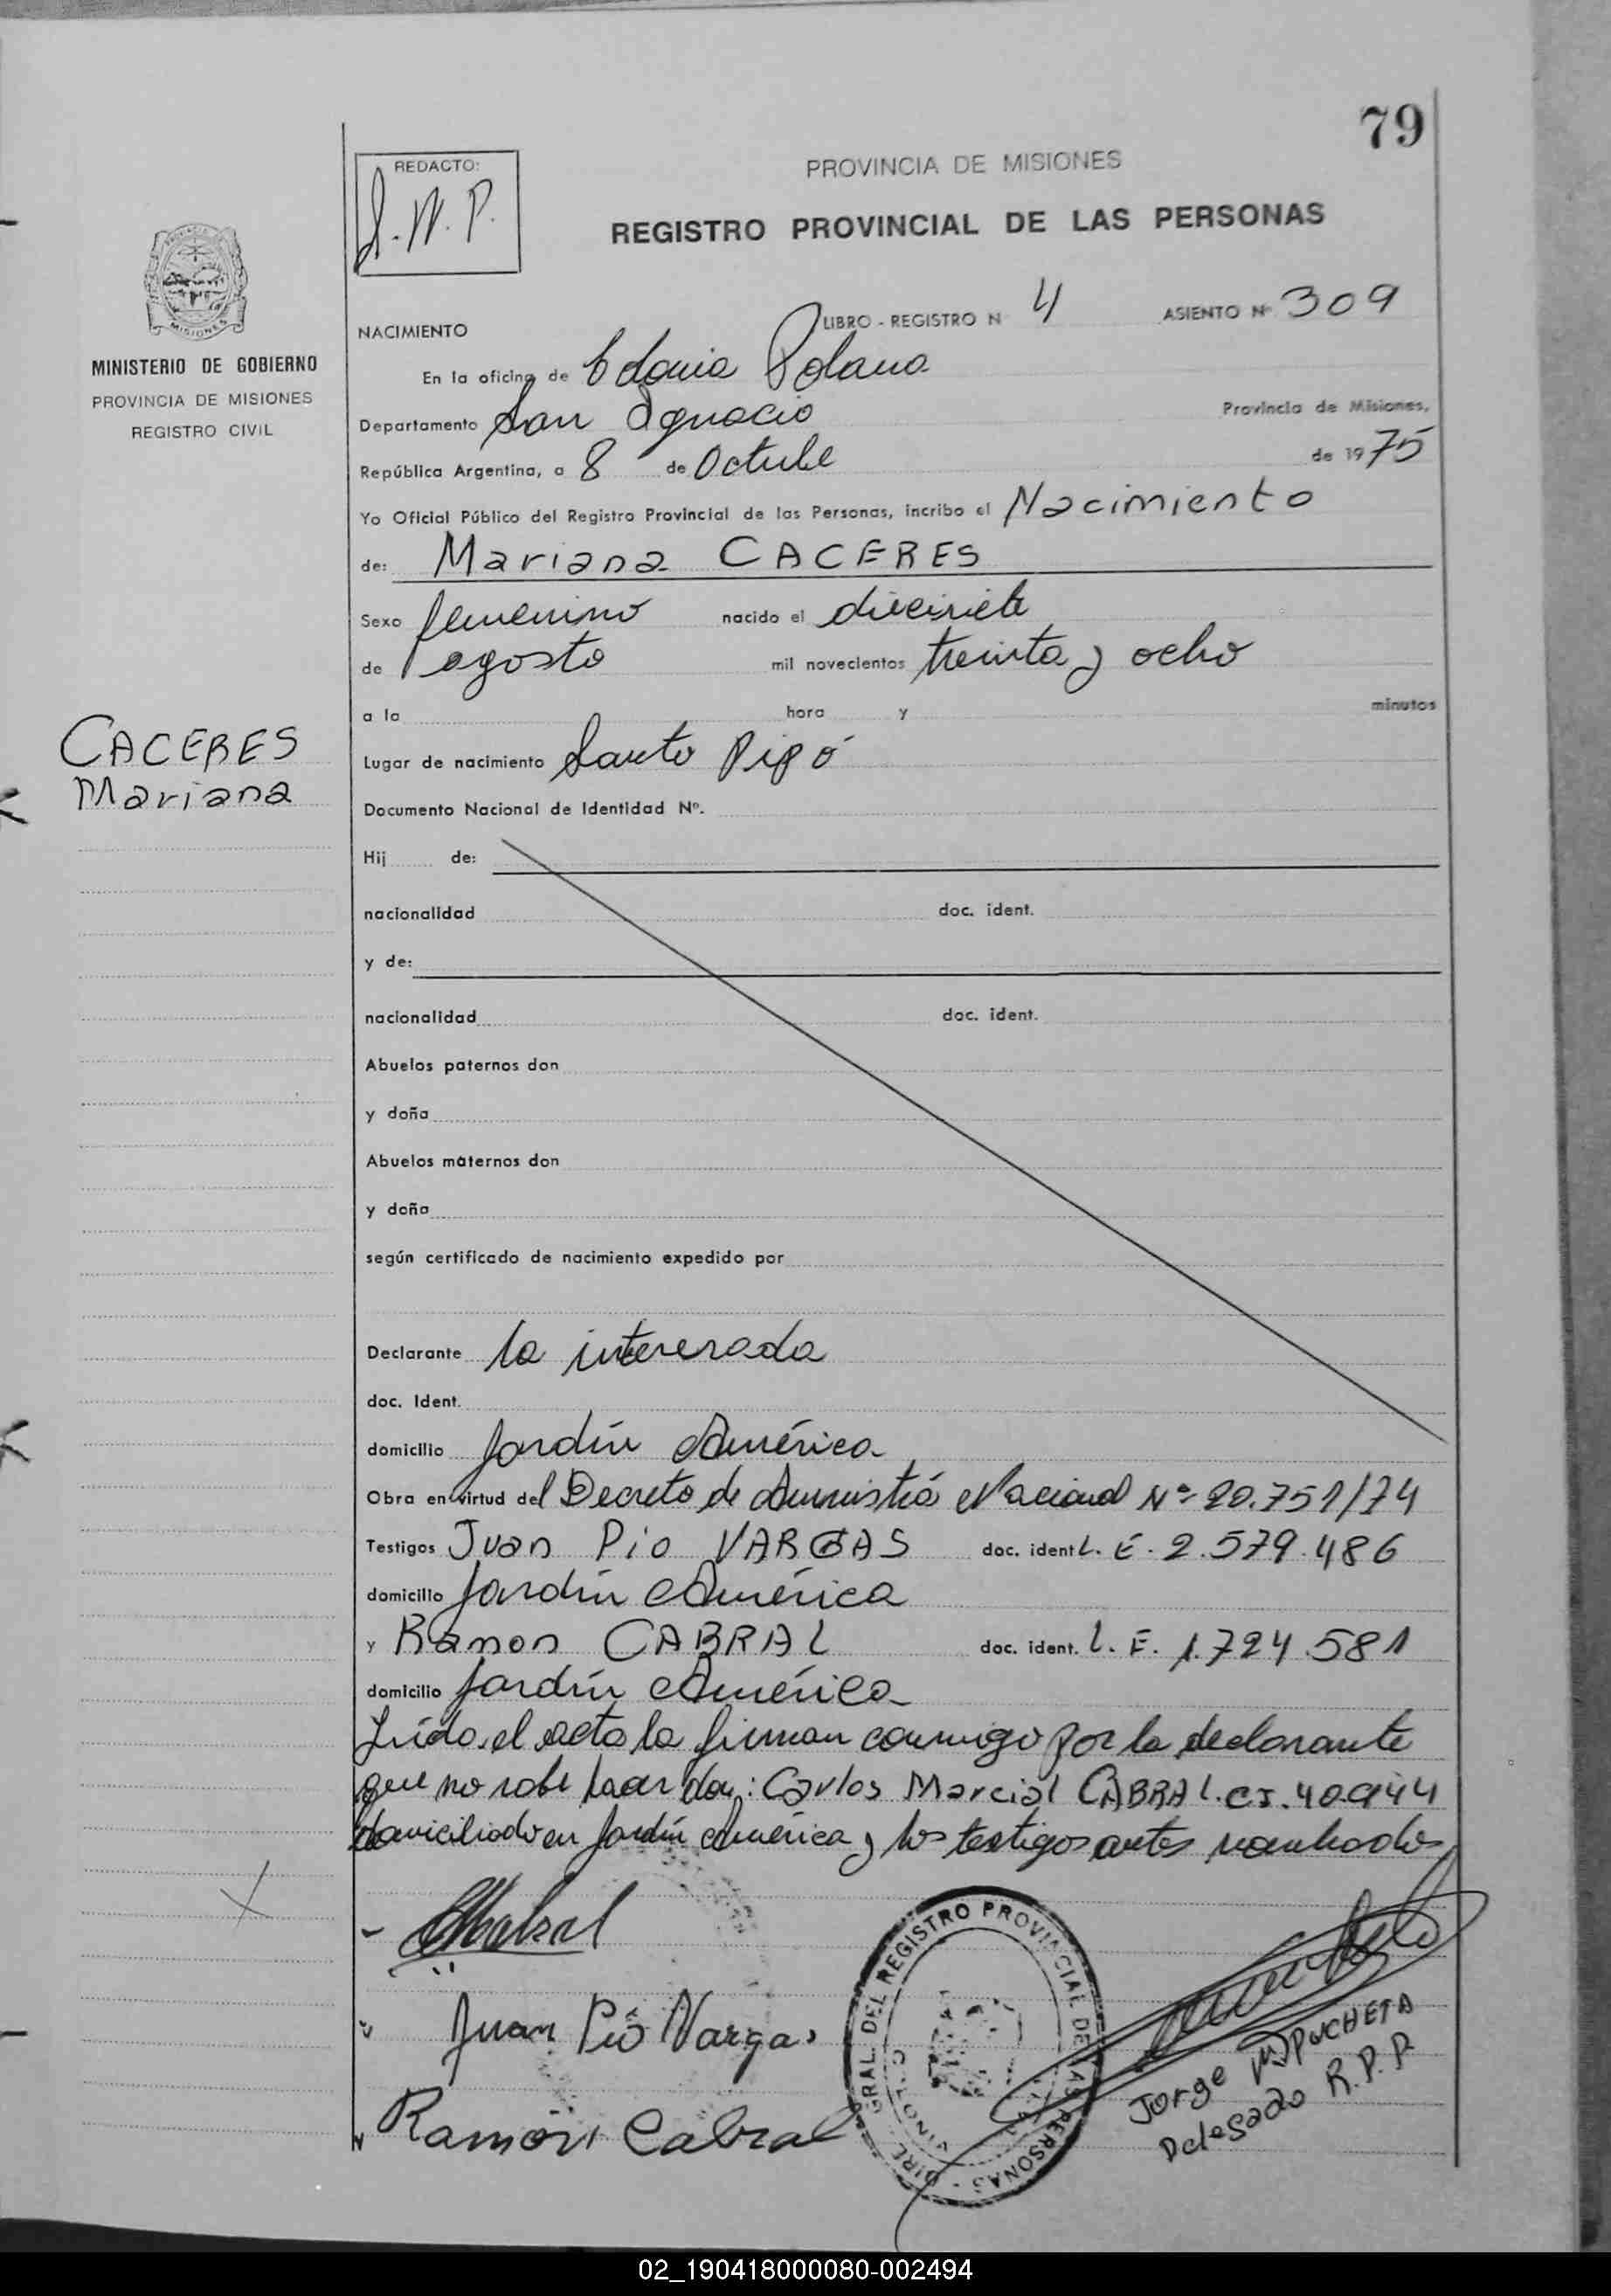 79
REDACTO:
J.M.P.
PROVINCIA DE MISIONES
REGISTRO PROVINCIAL DE LAS PERSONAS
MISIONES
MINISTERIO DE GOBIERNO
PROVINCIA DE MISIONES
REGISTRO CIVIL
NACIMIENTO
LIBRO - REGISTRO N 4 ASIENTO Nº 309
En la oficina de Colonia Polana
Departamento San Ignacio Provincia de Misiones,
República Argentina, a 8 de Octubre de 1975
Yo Oficial Público del Registro Provincial de las Personas, incribo el Nacimiento
de: Mariana CACERES
Sexo femenino nacido el diecisiete
de agosto mil novecientos treinta y ocho
a la hora y minutos
CACERES
Mariana
Lugar de nacimiento Santo Pipó
Documento Nacional de Identidad Nº.
Hij de:
nacionalidad doc. ident.
y de:
nacionalidad doc. ident.
Abuelos paternos don
y doña
Abuelos maternos don
y doña
según certificado de nacimiento expedido por
Declarante la interesada
doc. Ident.
domicilio Jardín América
Obra en virtud del Decreto de Amnistía Nacional Nº 20.751/74
Testigos Juan Pio VARGAS doc. ident L. E. 2.579.486
domicilio Jardín América
y Ramon CABRAL doc. ident. L. E. 1.724.581
domicilio Jardín América
Leída el acta la firman conmigo por la declarante
que no sabe hacer don: Carlos Marcial CABRAL. C.I. 40.944
domiciliado en Jardín América y los testigos antes nombrados
CMCabral
Juan Pio Vargas
Ramón Cabral
DIRE. GRAL. DEL REGISTRO PROVINCIAL DE LAS PERSONAS
Jorge M PUCHETA
Delegado R.P.P.
02_190418000080-002494